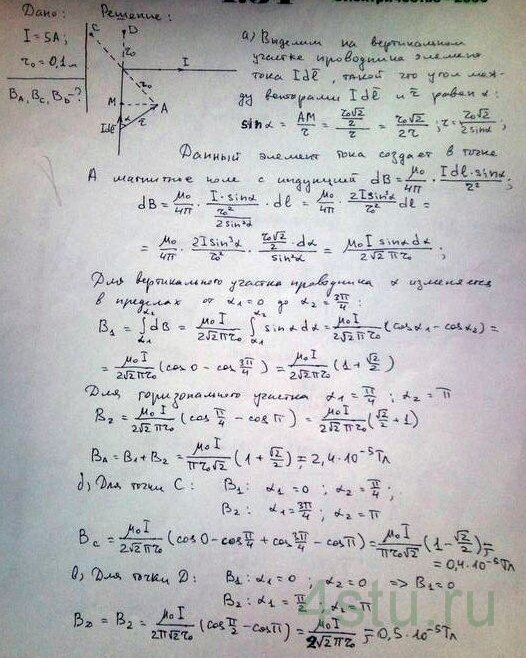 Дано:
Решение:
I = 5A;
r₀ = 0,1м
B_A, B_C, B_D - ?
C
D
r₀
I
M
A
r₀
Idl
α
r
а) Выделим на вертикальном
участке проводника элемент
тока Idl, такой что угол меж-
ду векторами Idl и r равен α:
sinα = AM/r = (r₀√2/2)/r = r₀√2/2r ; r = r₀√2/2sinα ;
Данный элемент тока создает в точке
А магнитное поле с индукцией dB = μ₀/4π · Idl·sinα/r² ;
dB = μ₀/4π · I·sinα/(r₀²/2sin²α) · dl = μ₀/4π · 2Isin³α/r₀² · dl =
= μ₀/4π · 2Isin³α/r₀² · (r₀√2/2 · dα)/sin²α = μ₀I sinα dα/2√2 πr₀ ;
Для вертикального участка проводника α изменяется
в пределах от α₁=0 до α₂=3π/4 :
B₁ = ∫dB = μ₀I/2√2πr₀ ∫sinα dα = μ₀I/2√2πr₀ (cosα₁ - cosα₂) =
= μ₀I/2√2πr₀ (cos0 - cos3π/4) = μ₀I/2√2πr₀ (1+√2/2)
Для горизонального участка α₁ = π/4 ; α₂ = π
B₂ = μ₀I/2√2πr₀ (cosπ/4 - cosπ) = μ₀I/2√2πr₀ (√2/2 + 1)
B_A = B₁ + B₂ = μ₀I/πr₀√2 (1+√2/2) = 2,4·10⁻⁵Тл
б) Для точки С: B₁: α₁ = 0 ; α₂ = π/4 ;
B₂: α₁ = 3π/4 ; α₂ = π
B_C = μ₀I/2√2πr₀ (cos0 - cosπ/4 + cos3π/4 - cosπ) = μ₀I/πr₀√2 (1-√2/2) =
= 0,4·10⁻⁵Тл
в) Для точки D: B₁: α₁ = 0 ; α₂ = 0 => B₁=0
B₂: α₁ = π/2 ; α₂ = π
B_D = B₂ = μ₀I/2π√2r₀ (cosπ/2 - cosπ) = μ₀I/2√2πr₀ = 0,5·10⁻⁵Тл
4stu.ru